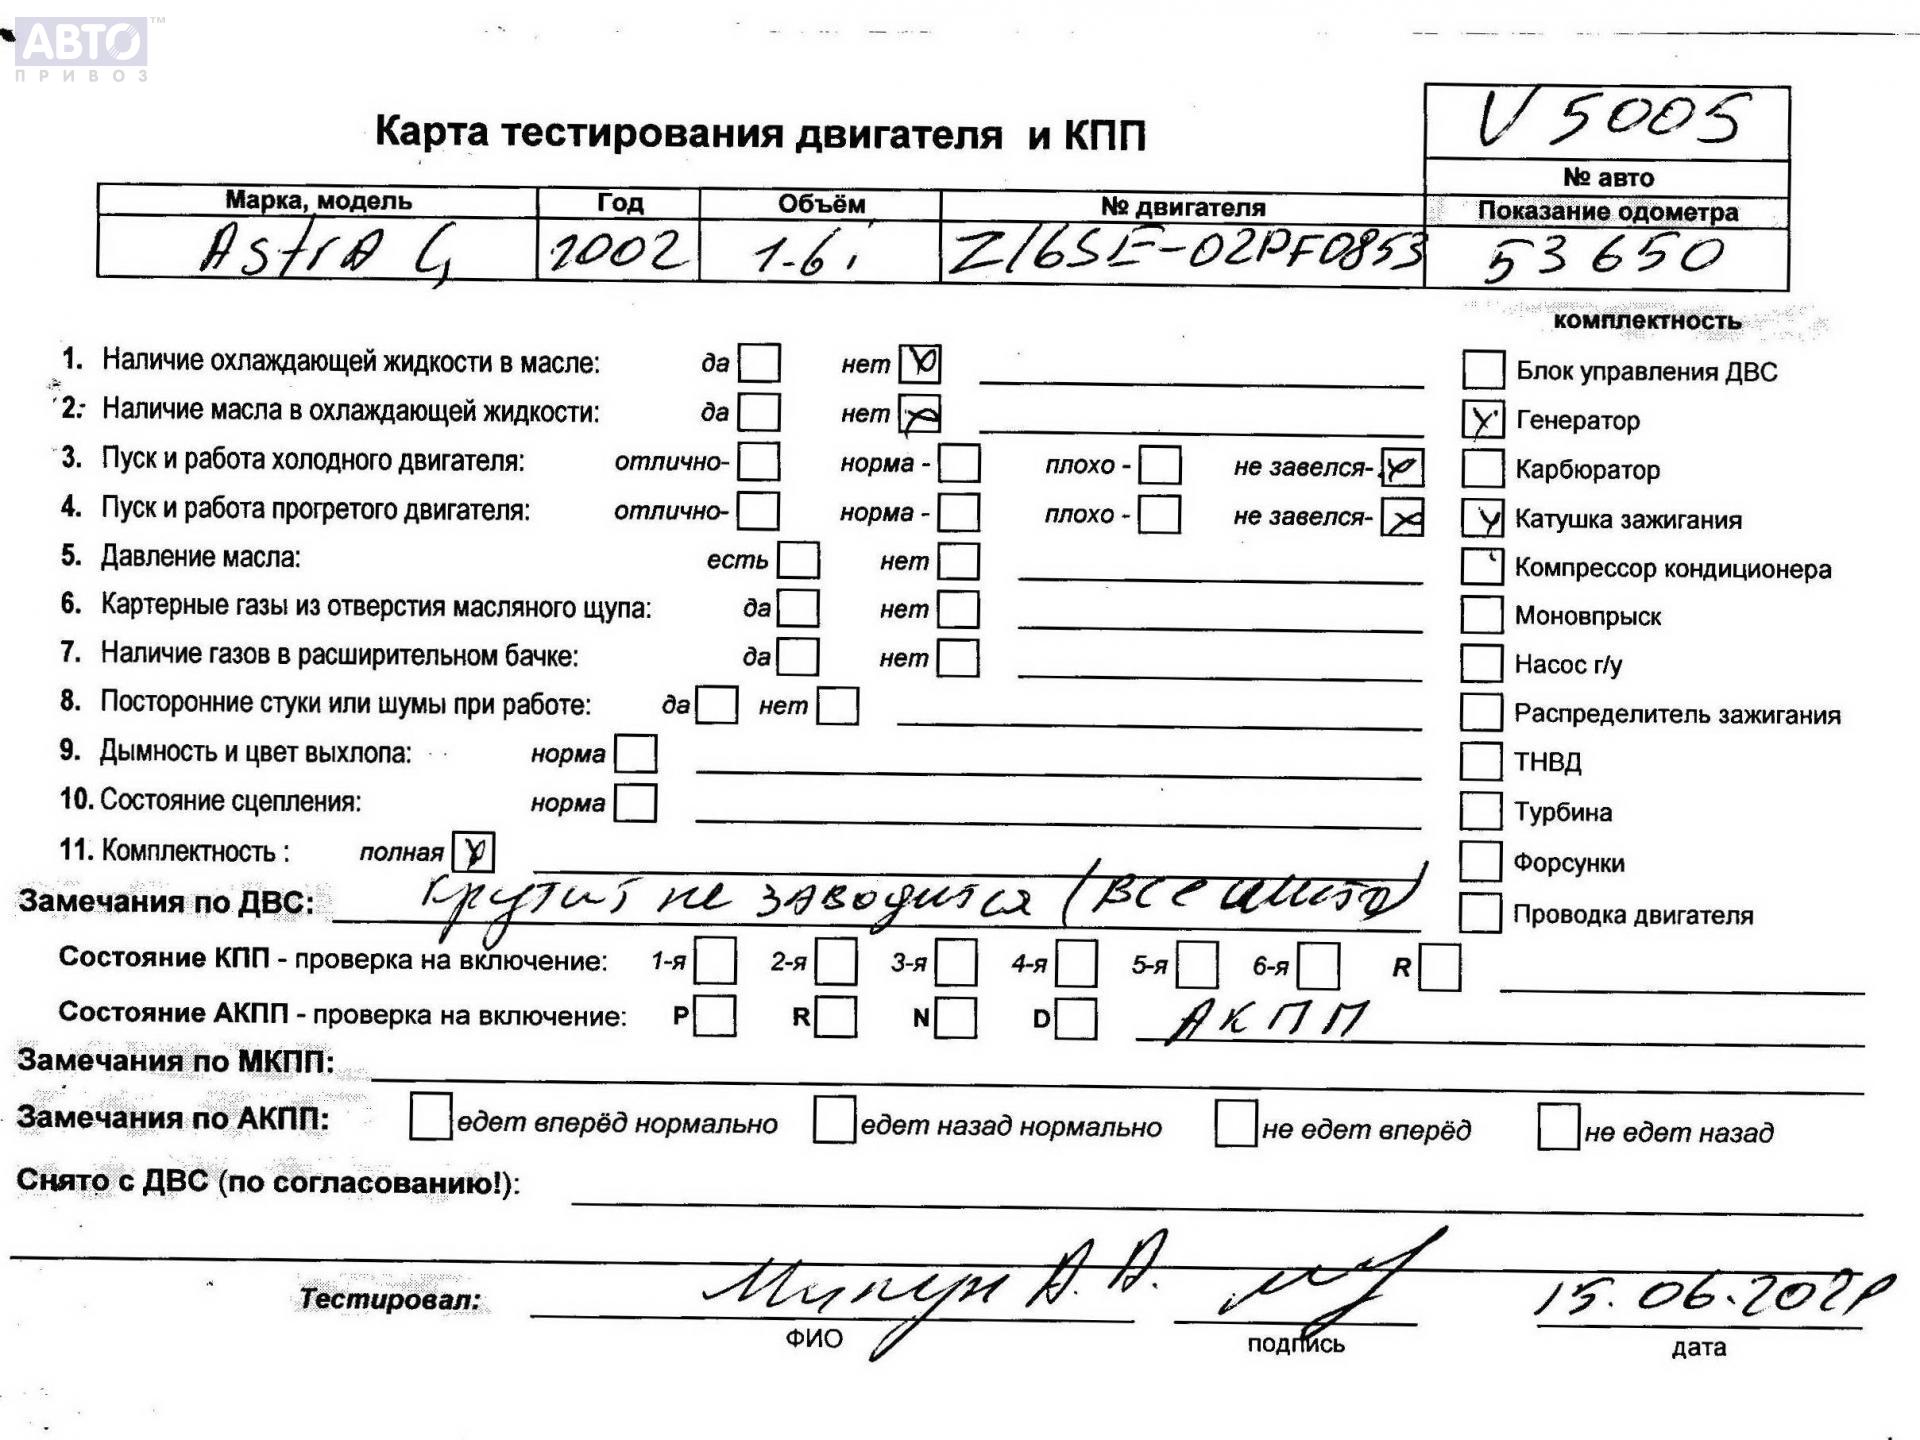 АВТО™
ПРИВОЗ
V 5005
Карта тестирования двигателя и КПП
№ авто
Марка, модель Год Объём № двигателя Показание одометра
AstrA G 2002 1.6i Z16SE-02PF0853 53650
комплектность
1. Наличие охлаждающей жидкости в масле: да нет Блок управления ДВС
2. Наличие масла в охлаждающей жидкости: да нет Генератор
3. Пуск и работа холодного двигателя: отлично- норма - плохо - не завелся- Карбюратор
4. Пуск и работа прогретого двигателя: отлично- норма - плохо - не завелся- Катушка зажигания
5. Давление масла: есть нет Компрессор кондиционера
6. Картерные газы из отверстия масляного щупа: да нет Моновпрыск
7. Наличие газов в расширительном бачке: да нет Насос г/у
8. Посторонние стуки или шумы при работе: да нет Распределитель зажигания
9. Дымность и цвет выхлопа: норма ТНВД
10. Состояние сцепления: норма Турбина
11. Комплектность : полная Форсунки
Замечания по ДВС: крутит не заводится (все Проводка двигателя
Состояние КПП - проверка на включение: 1-я 2-я 3-я 4-я 5-я 6-я R
Состояние АКПП - проверка на включение: P R N D АКПП
Замечания по МКПП:
Замечания по АКПП: едет вперёд нормально едет назад нормально не едет вперёд не едет назад
Снято с ДВС (по согласованию!):
Тестировал: А.А. 15.06.202
ФИО подпись дата